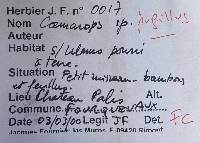 Herbier J. F. n° 0017
Nom Coemansops sp. Aspillus
Auteur
Habitat s/ Ulmus pourri
à terre.
Situation Petit ruisseau bambous
et feuillus.
Lieu Chateau Palis Alt.
Commune FOURQUEVAUX...
Date 03/03/00 Legit JF Det. FC
Jacques Fournier Las Muros F-09420 Rimont